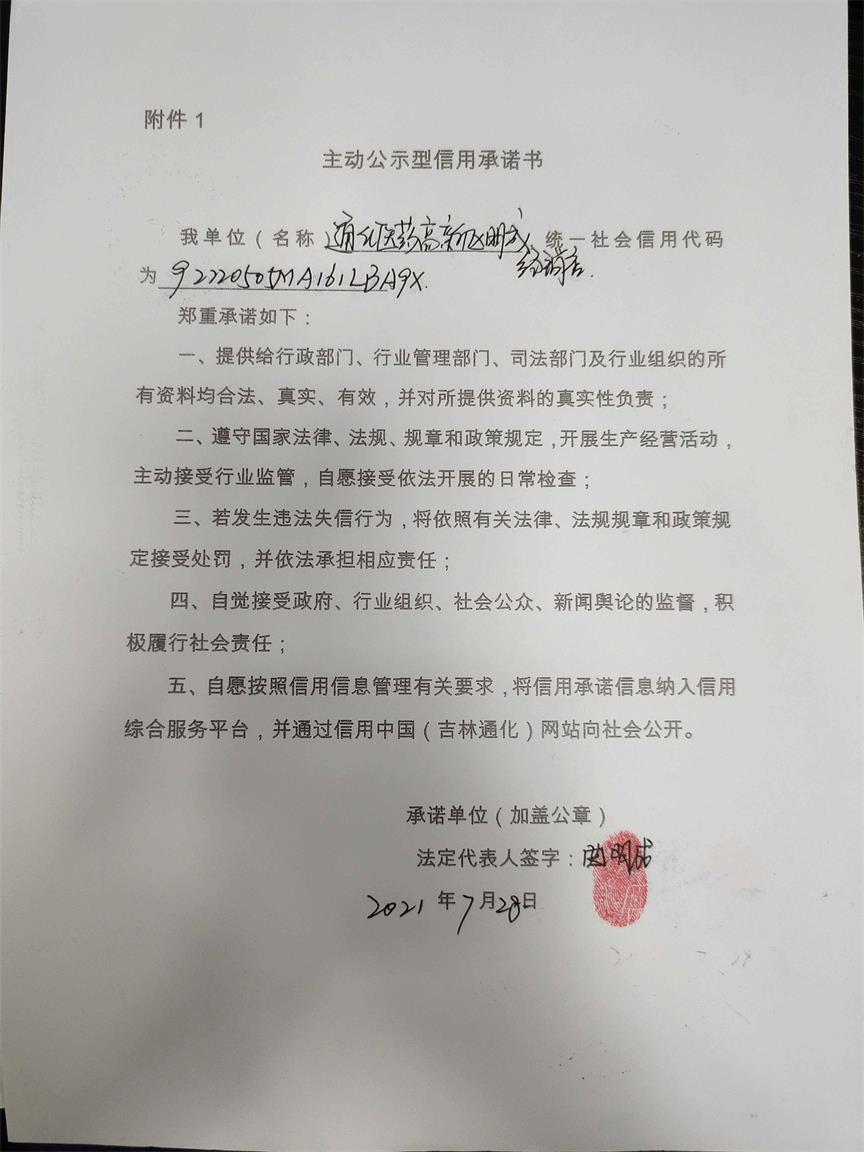 附件 1
主动公示型信用承诺书
我单位（名称 通化医药高新区明成 统一社会信用代码
经销店.
为 92220505MA161LBA9X.
郑重承诺如下：
一、提供给行政部门、行业管理部门、司法部门及行业组织的所
有资料均合法、真实、有效，并对所提供资料的真实性负责；
二、遵守国家法律、法规、规章和政策规定，开展生产经营活动，
主动接受行业监管，自愿接受依法开展的日常检查；
三、若发生违法失信行为，将依照有关法律、法规规章和政策规
定接受处罚，并依法承担相应责任；
四、自觉接受政府、行业组织、社会公众、新闻舆论的监督，积
极履行社会责任；
五、自愿按照信用信息管理有关要求，将信用承诺信息纳入信用
综合服务平台，并通过信用中国（吉林通化）网站向社会公开。
承诺单位（加盖公章）
法定代表人签字：明成
2021 年 7 月 28 日